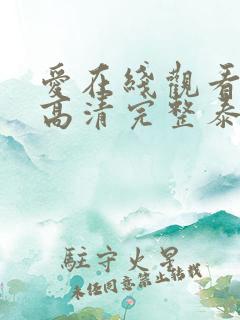 愛在綫觀看
高清完整泰
駐守火星
未经同意禁止转载